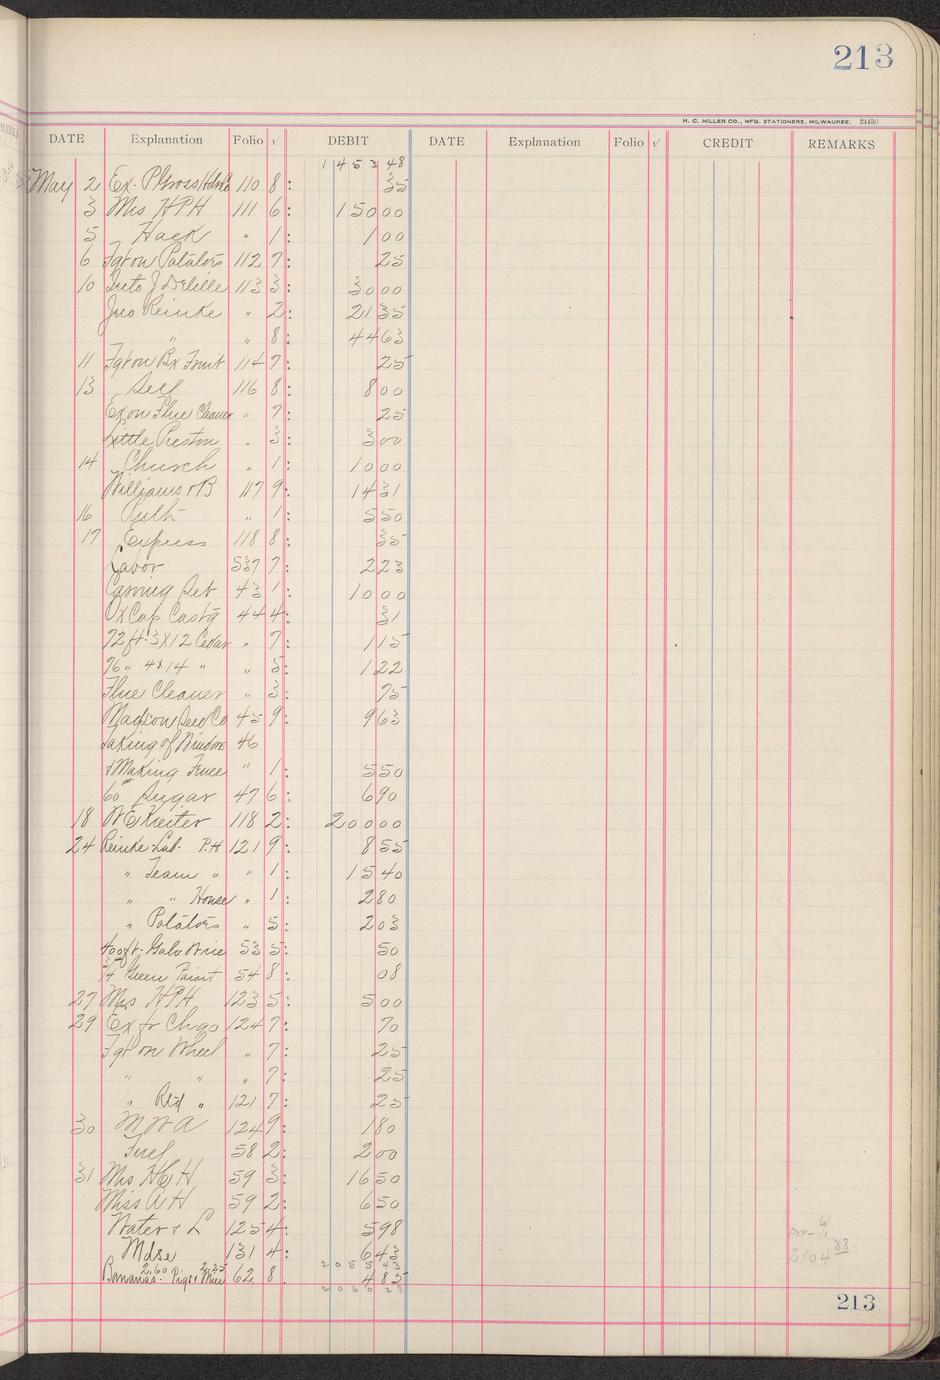 213
H. C. MILLER CO., MFG. STATIONERS, MILWAUKEE. 24450
DATE Explanation Folio √ DEBIT DATE Explanation Folio √ CREDIT REMARKS
1453 48
May 2 Ex. P Gross 110 8: 35
3 Mrs HPH 111 6: 150 00
5 Hack " 1: 1 00
6 Fgt on Potatoes 112 7: 25
10 J Delille 113 3: 30 00
Jno Reinke " 2: 21 35
" " 8: 44 63
11 Fgt on Bx Fruit 114 7: 25
13 Self 116 8: 8 00
Ex on Flue Cleaner " 7: 25
Little Preston " 3: 3 00
14 Church " 1: 10 00
Williams & B 117 9: 14 31
16 Ruth " 1: 5 50
17 Express 118 8: 35
Labor 537 7: 2 23
Carving Set 43 1: 10 00
Ox Cap Castg 44 4: 31
72 ft. 3X12 Cedar " 7: 1 15
76 " 4X14 " " 5: 1 22
Flue Cleaner " 3: 75
Madison Seed Co 45 9: 9 63
Taking of Window 46
& Making Fence " 1: 5 50
60# Sugar 47 6: 6 90
18 118 2: 200 00
24 Reinke Lab. P.H 121 9: 8 55
" Team " " 1: 15 40
" " House " 1: 2 80
" Potatoes " 5: 2 03
400 ft. Galv Wire 53 5: 50
Green Paint 54 8: 08
27 Mrs HPH 123 5: 5 00
29 Ex fr Chgo 124 7: 70
Fgt on Wheel " 7: 25
" " " 7: 25
" Rtd " 121 7: 25
30 M W A 124 9: 1 80
Fuel 58 2: 2 00
31 Mrs H C H 59 3: 16 50
Miss A H 59 2: 6 50
Water & L 125 4: 5 98
Mdse 131 4: 6 43
2055 43
Bananas 2.60 Pigs & Wire 2.25 62 8 4 85
2060 28
6/1
2104 38
213